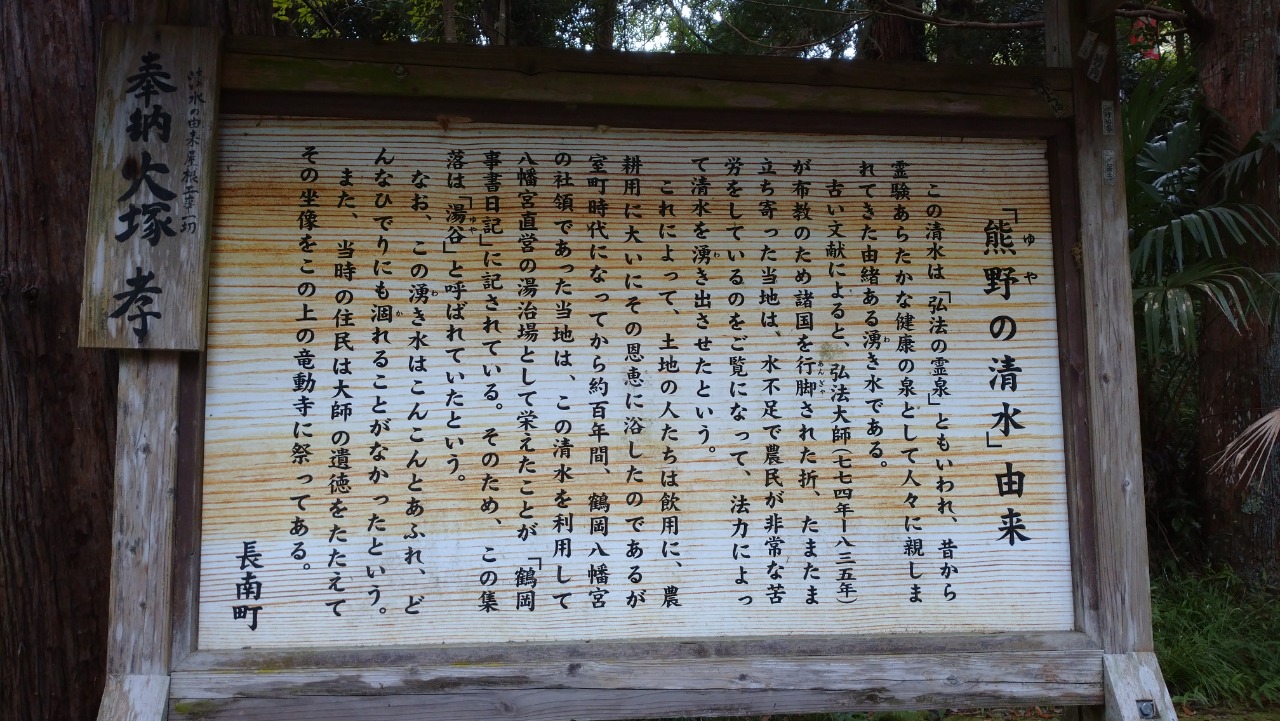 「熊野の清水」由来
ゆや
この清水は「弘法の霊泉」ともいわれ、昔から
霊験あらたかな健康の泉として人々に親しま
れてきた由緒ある湧き水である。
わ
古い文献によると、弘法大師(七七四年ー八三五年)
が布教のため諸国を行脚された折、たまたま
あんぎゃ
立ち寄った当地は、水不足で農民が非常な苦
労をしているのをご覧になって、法力によっ
て清水を湧き出させたという。
わ
これによって、土地の人たちは飲用に、農
耕用に大いにその恩恵に浴したのであるが
室町時代になってから約百年間、鶴岡八幡宮
の社領であった当地は、この清水を利用して
八幡宮直営の湯治場として栄えたことが「鶴岡
事書日記」に記されている。そのため、この集
落は「湯谷」と呼ばれていたという。
ゆや
なお、この湧き水はこんこんとあふれ、ど
わ
んなひでりにも涸れることがなかったという。
か
また、当時の住民は大師の遺徳をたたえて
その坐像をこの上の竜動寺に祭ってある。
長南町
清水の由来屋根工事一切
奉納大塚 孝